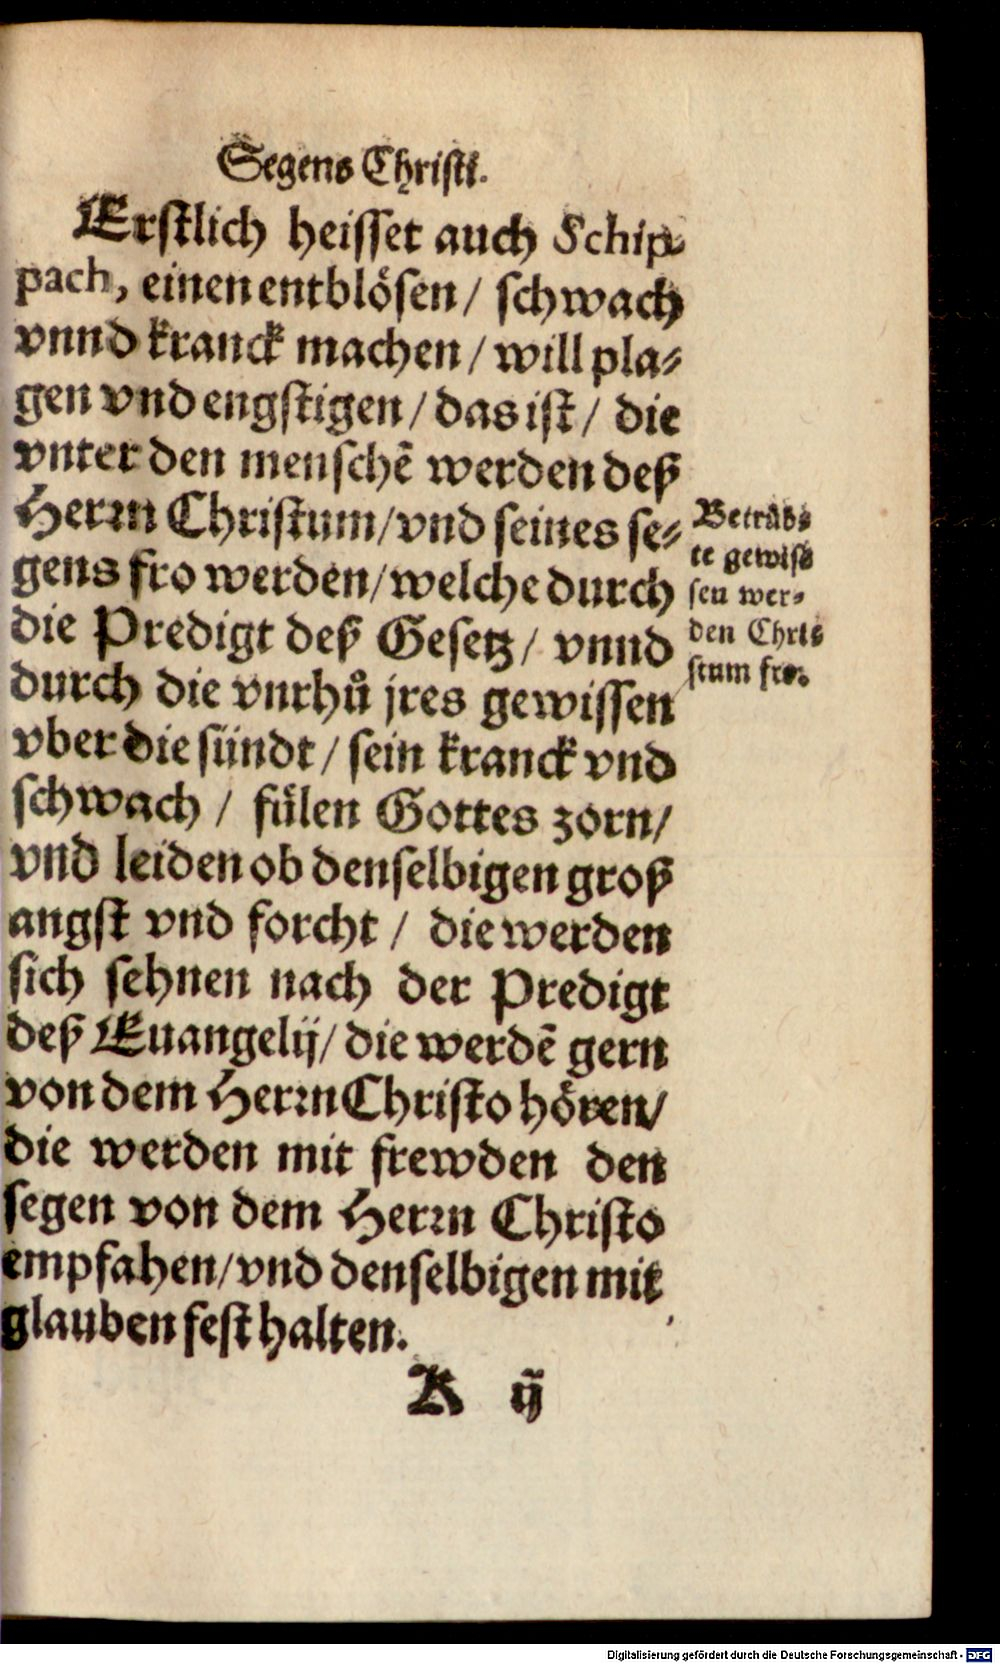 Segens Christi.
Erstlich heisset auch Schip-
pach, einen entblösen / schwach
vnnd kranck machen / will pla-
gen vnd engstigen / das ist / die
vnter den menschē werden deß
Herrn Christum / vnd seines se-
gens fro werden / welche durch
die Predigt deß Gesetz / vnnd
durch die vnrhů jres gewissen
vber die sündt / sein kranck vnd
schwach / fülen Gottes zorn /
vnd leiden ob denselbigen groß
angst vnd forcht / die werden
sich sehnen nach der Predigt
deß Euangelij / die werdē gern
von dem Herrn Christo hören /
die werden mit frewden den
segen von dem Herrn Christo
empfahen / vnd denselbigen mit
glauben fest halten.
Betrüb-
te gewiss
sen wer-
den Chri-
stum fro.
K ij
Digitalisierung gefördert durch die Deutsche Forschungsgemeinschaft - DFG